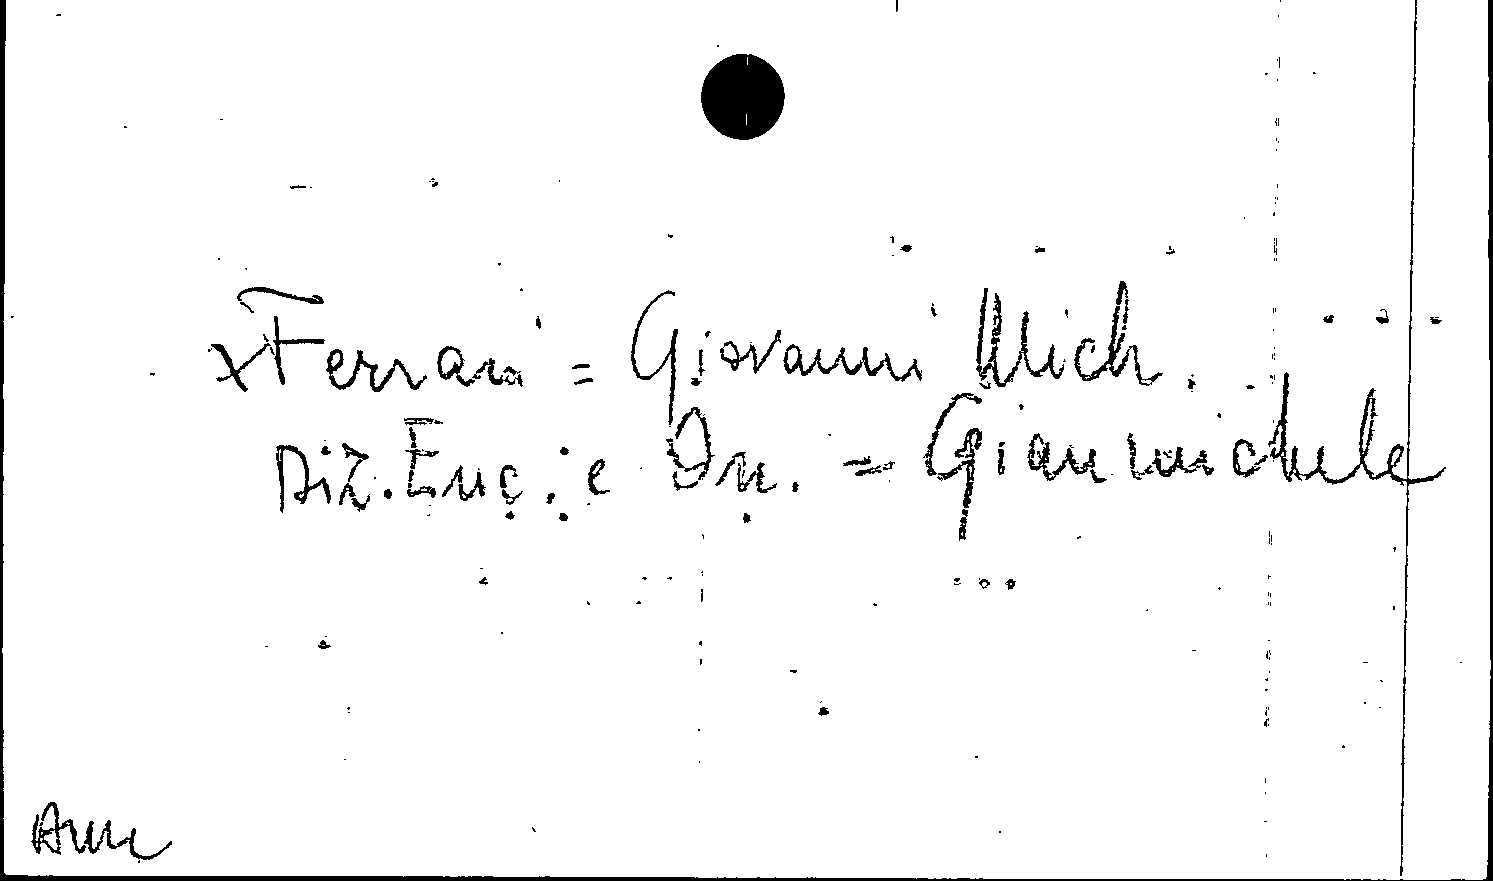 x Ferrari = Giovanni Mich.
Diz. Enc. e On. = Gianmichele